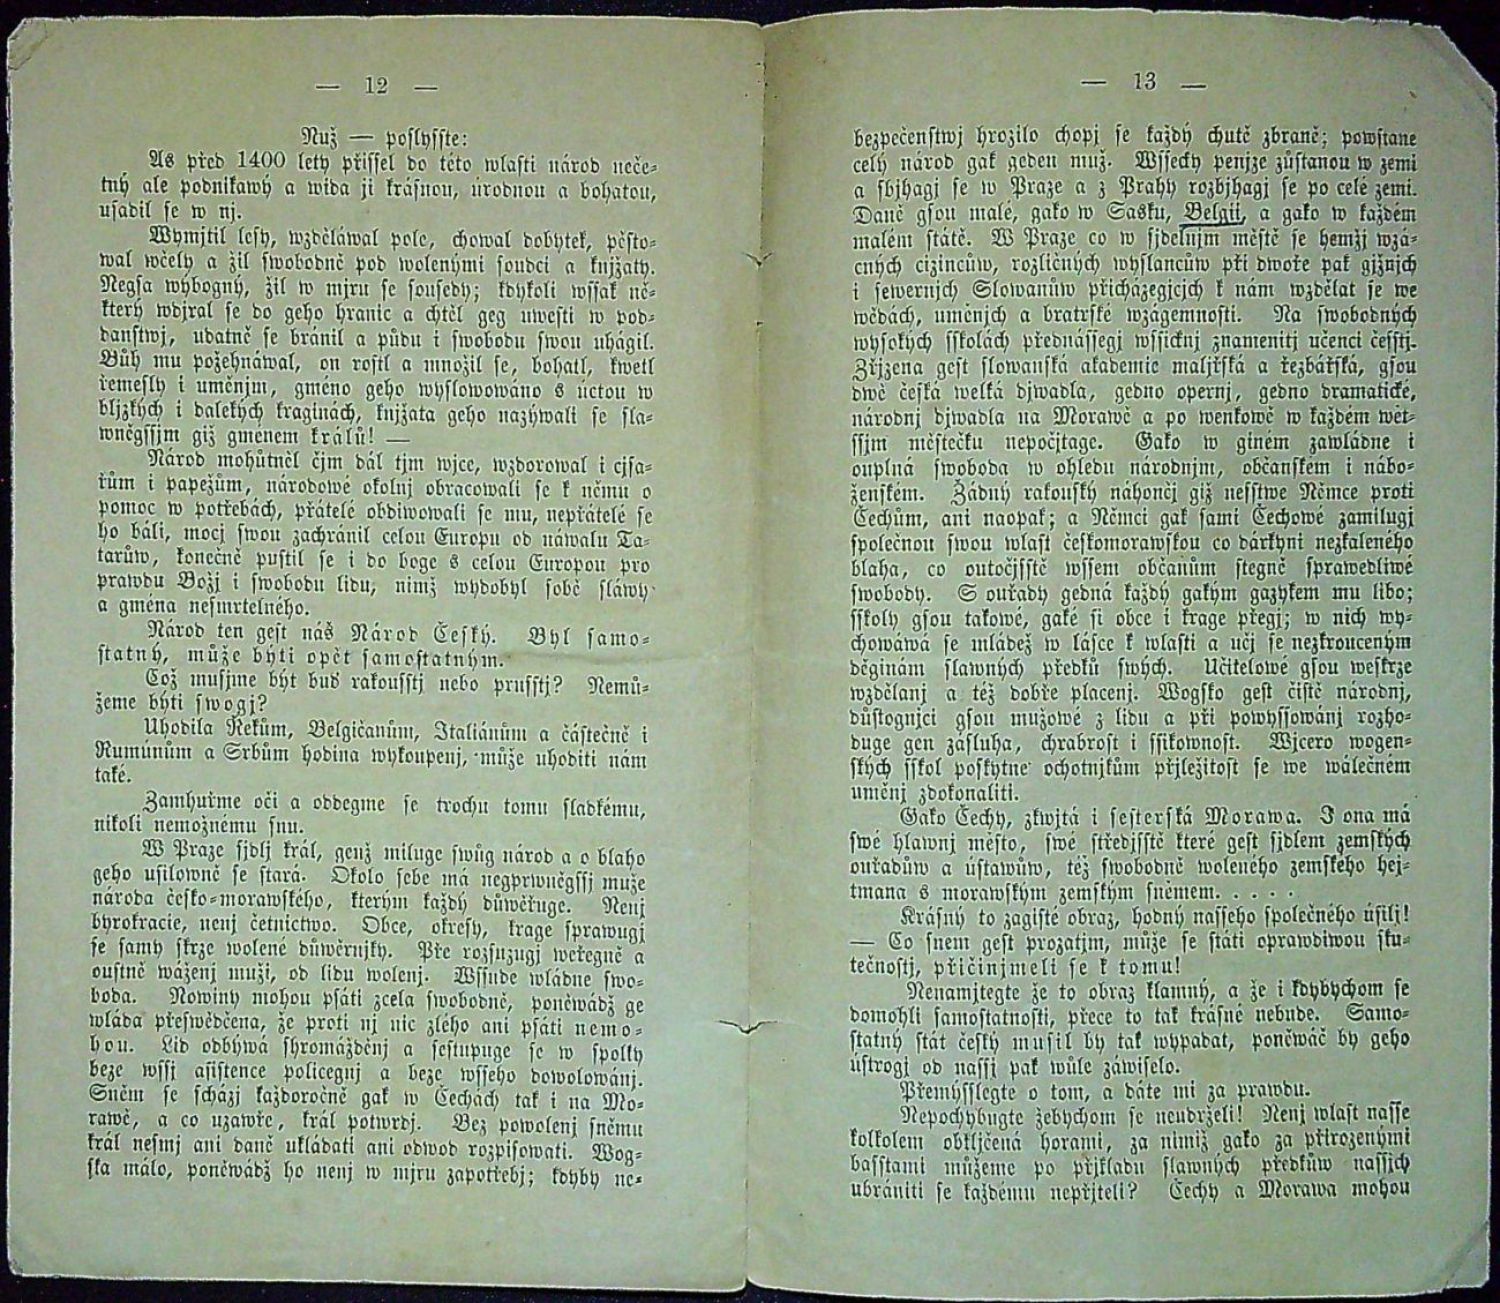 — 12 —
Nuž — poslyšste:
As před 1400 lety přissel do této wlasti národ neče-
tný ale podnikawý a wida ji krásnou, úrodnou a bohatou,
usadil se w nj.
Wymjtil lesy, wzděláwal pole, chowal dobytek, pěsto-
wal wčely a žil swobodně pod wolenými soudci a knjžaty.
Negsa wýbogný, žil w mjru se sousedy; kdykoli wssak ně-
který wdjral se do geho hranic a chtěl geg uwesti w pod-
danstwj, udatně se bránil a půdu i swobodu swou uhágil.
Bůh mu požehnáwal, on rostl a množil se, bohatl, kwetl
řemesly i uměnjm, gméno geho wyslowowáno s úctou w
bljzkých i dalekých kraginách, knjžata geho nazýwali se sla-
wněgssjm giž gménem králů! —
Národ mohútněl čjm dál tjm wjce, wzdorowal i cjsa-
řům i papežům, národowé okolnj obracowali se k němu o
pomoc w potřebách, přátelé obdiwowali se mu, nepřátelé se
ho báli, mocj swou zachránil celou Europu od náwalu Ta-
tarůw, konečně pustil se i do boge s celou Europou pro
prawdu Božj i swobodu lidu, njmž wydobyl sobě sláwy
a gména nesmrtelného.
Národ ten gest náš Národ Český. Byl samo-
statný, může býti opět samostatným.
Což musjme být buď rakousstj nebo prusstj? Nemů-
žeme býti swogi?
Uhodila Řekům, Belgičanům, Italiánům a částečně i
Rumúnům a Srbům hodina wykoupenj, může uhoditi nám
také.
Zamhuřme oči a oddegme se trochu tomu sladkému,
nikoli nemožnému snu.
W Praze sjdlj král, genž miluge swůg národ a o blaho
geho usilowně se stará. Okolo sebe má negprwněgssj muže
národa česko-morawského, kterým každý důwěřuge. Nenj
byrokracie, nenj četnictwo. Obce, okresy, krage sprawugj
se samy skrze wolené důwěrnjky. Pře rozsuzugj weřegně a
oustně wáženj muži, od lidu wolenj. Wssude wládne swo-
boda. Nowiny mohou psáti zcela swobodně, poněwádž ge
wláda přeswědčena, že proti nj nic zlého ani psáti nemo-
hou. Lid odbýwá shromážděnj a sestupuge se w spolky
beze wssj asistence policegnj a beze wsseho dowolowánj.
Sněm se scházj každoročně gak w Čechách tak i na Mo-
rawě, a co uzawře, král potwrdj. Bez powolenj sněmu
král nesmj ani daně ukládati ani odwod rozpisowati. Wog-
ska málo, poněwádž ho nenj w mjru zapotřebj; kdyby ne-
— 13 —
bezpečenstwj hrozilo chopj se každý chutě zbraně; powstane
celý národ gak geden muž. Wssecky penjze zůstanou w zemi
a sbjhagj se w Praze a z Prahy rozbjhagj se po celé zemi.
Daně gsou malé, gako w Sasku, Belgii, a gako w každém
malém státě. W Praze co w sjdelnjm městě se hemžj wzá-
cných cizincůw, rozličných wyslancůw při dwoře pak gižnjch
i sewernjch Slowanůw přicházegjcjch k nám wzdělat se we
wědách, uměnjch a bratrské wzágemnosti. Na swobodných
wysokých sskolách přednássegj wssicknj znamenitj učenci čestj.
Zřjzena gest slowanská akademie maljřská a řezbářská, gsou
dwě česká welká djwadla, gedno opernj, gedno dramatické,
národnj djwadla na Morawě a po wenkowě w každém wět-
ssjm městečku nepočjtage. Gako w giném zawládne i
ouplná swoboda w ohledu národnjm, občanském i nábo-
ženském. Žádný rakouský náhončj giž nesstwe Němce proti
Čechům, ani naopak; a Němci gak sami Čechowé zamilugj
společnou swou wlast českomorawskou co dárkyni nezkaleného
blaha, co outočjsstě wssem občanům stegně sprawedliwé
swobody. S ouřady gedná každý gakým gazykem mu libo;
sskoly gsou takowé, gaké si obce i krage přegj; w nich wy-
chowáwá se mládež w lásce k wlasti a učj se nezkrouceným
děginám slawných předků swých. Učitelowé gsou weskrze
wzdělanj a též dobře placenj. Wogsko gest čistě národnj,
důstognjci gsou mužowé z lidu a při powyssowánj rozho-
duge gen zásluha, chrabrost i ssikownost. Wjcero wogen-
ských sskol poskytne ochotnjkům přjležitost se we wálečném
uměnj zdokonaliti.
Gako Čechy, zkwjtá i sesterská Morawa. I ona má
swé hlawnj město, swé středjsstě které gest sjdlem zemských
ouřadůw a ústawůw, též swobodně woleného zemského hej-
tmana s morawským zemským sněmem. . . . .
Krásný to zagisté obraz, hodný nasseho společného úsilj!
— Co snem gest prozatjm, může se státi oprawdiwou sku-
tečnostj, přičinjmeli se k tomu!
Nenamjtegte že to obraz klamný, a že i kdybychom se
domohli samostatnosti, přece to tak krásné nebude. Samo-
statný stát český musil by tak wypadat, poněwáč by geho
ústrogj od nassj pak wůle záwiselo.
Přemýsslegte o tom, a dáte mi za prawdu.
Nepochybugte žebychom se neudrželi! Nenj wlast nasse
kolkolem obkljčená horami, za nimiž gako za přirozenými
basstami můžeme po přjkladu slawných předkůw nassjch
ubrániti se každému nepřjteli? Čechy a Morawa mohou